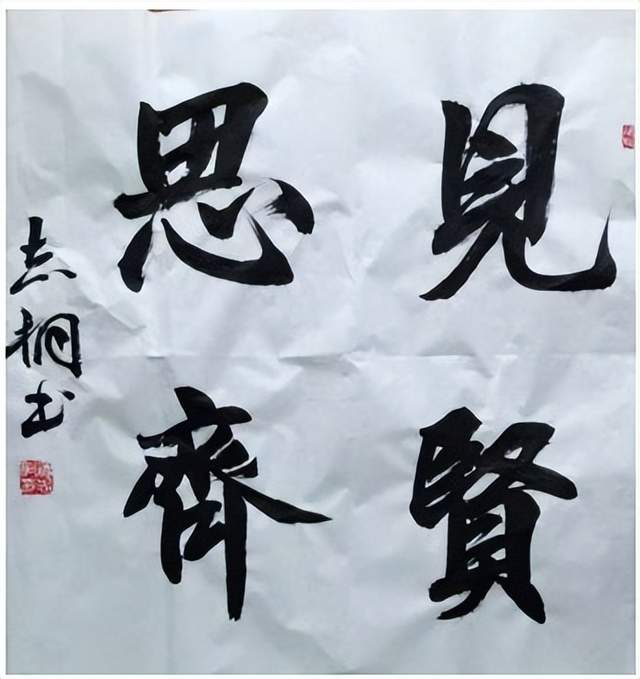 見賢
思齊
志桐书